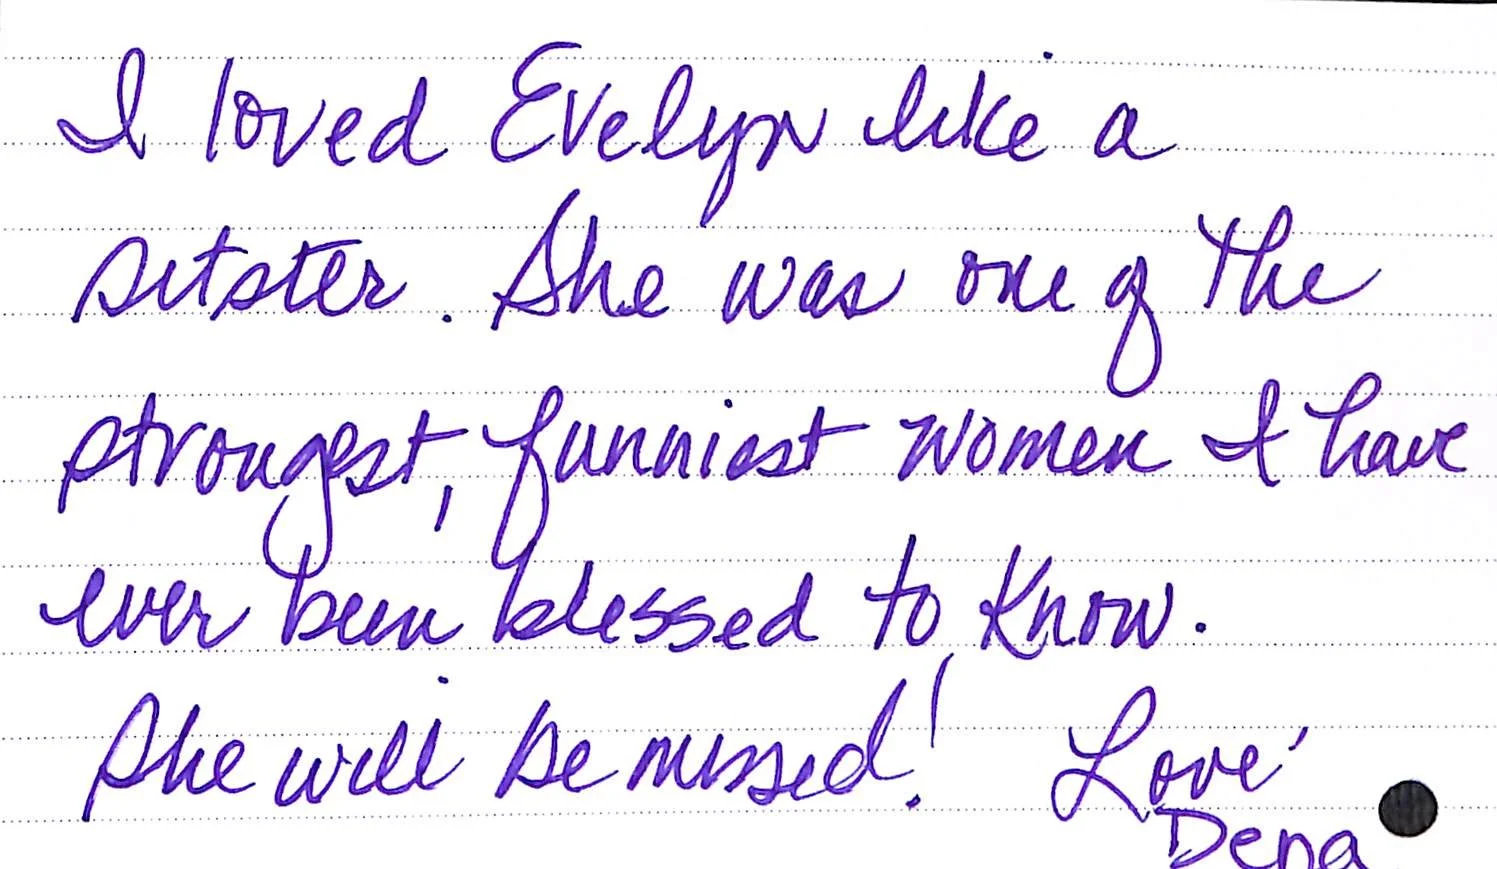 I loved Evelyn like a
sitster. She was one of the
strongest, funniest women I have
ever been blessed to know.
She will be missed! Love
Dena